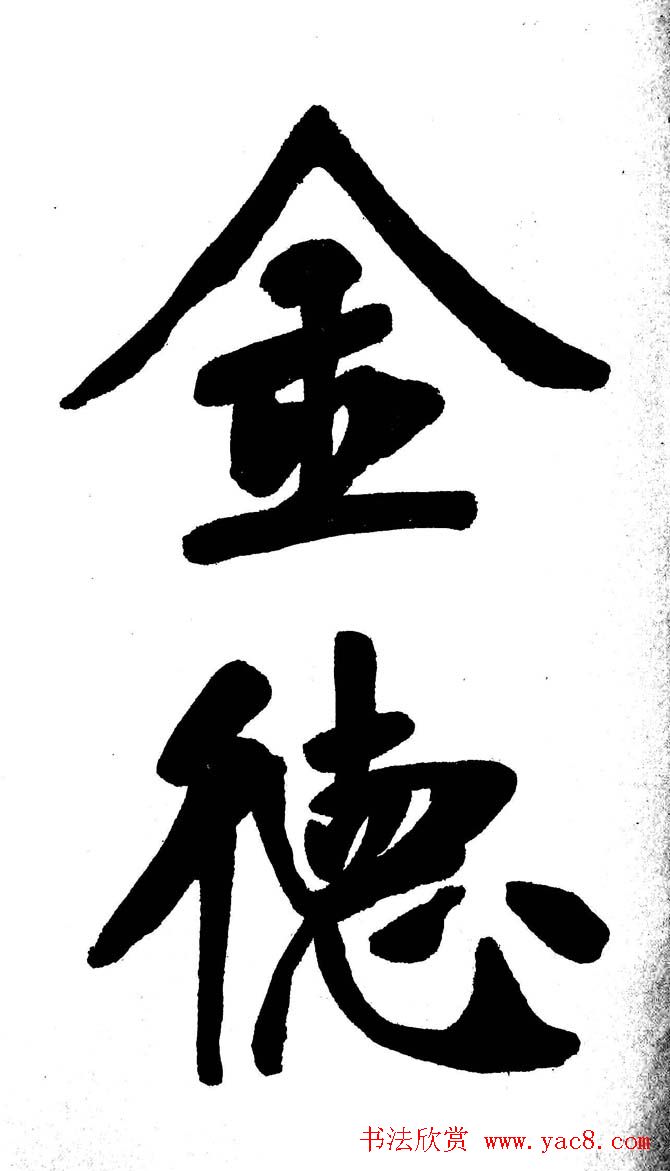 金
德
书法欣赏 www.yac8.com